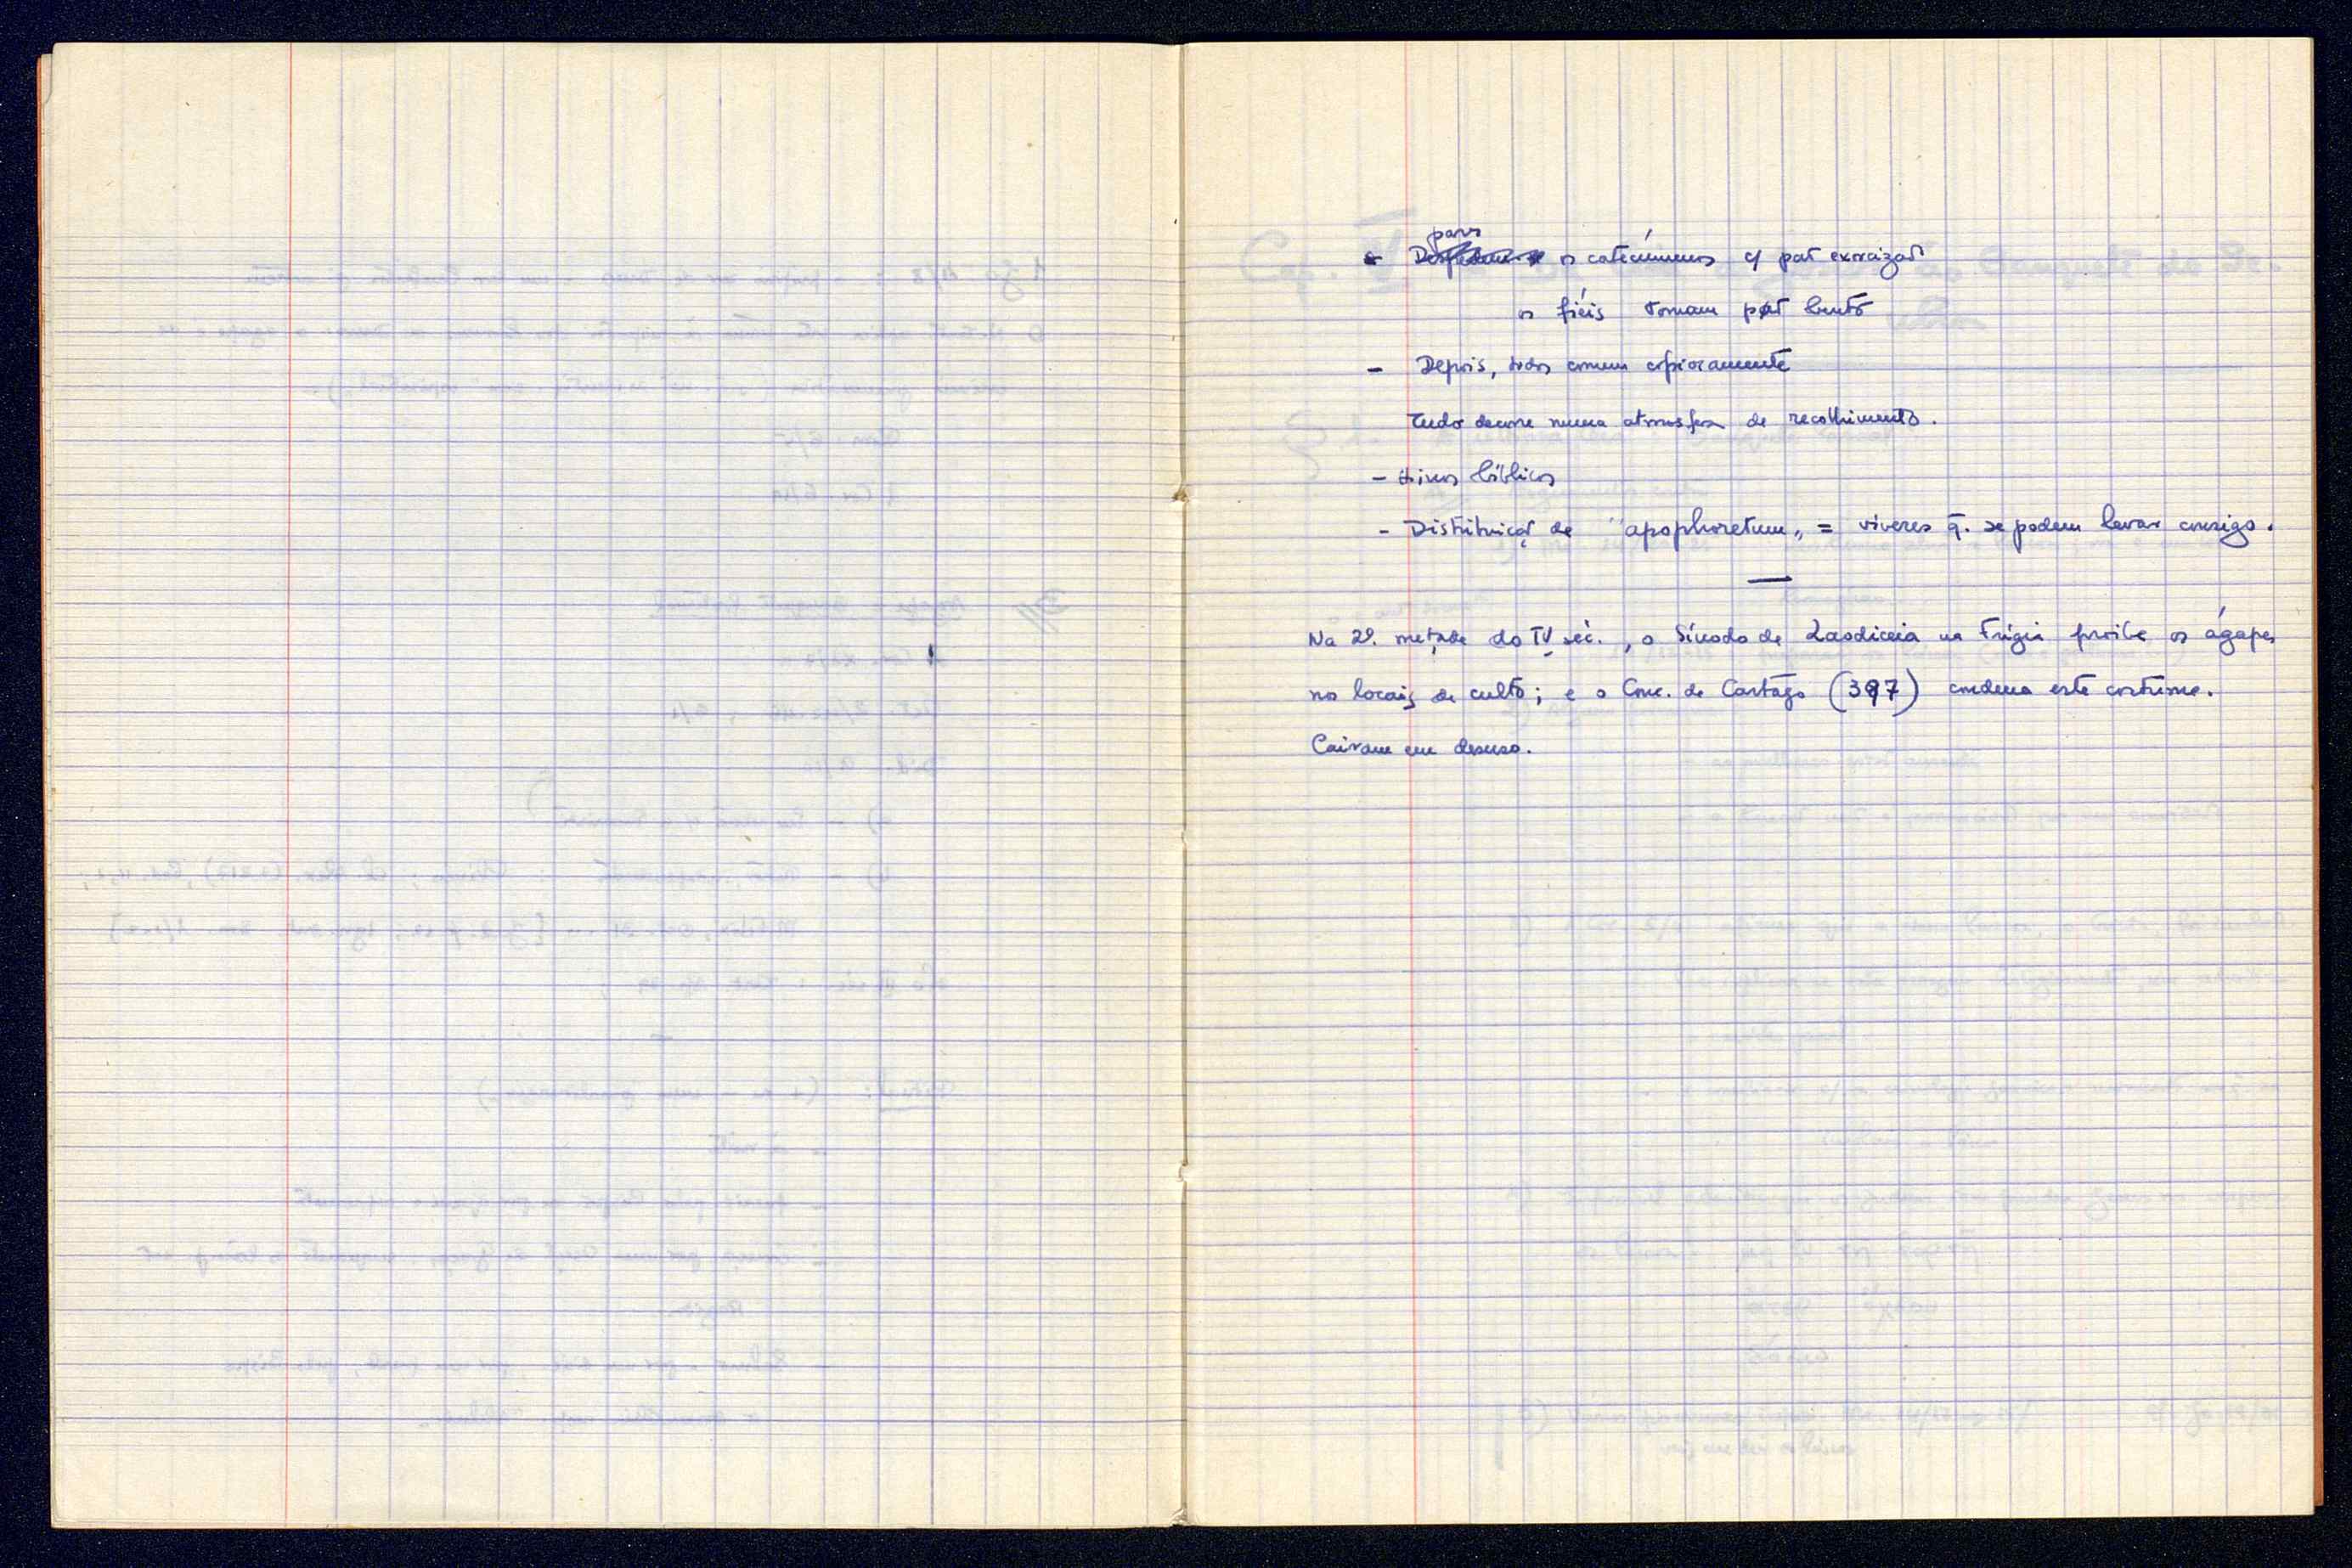 para
os catecúmenos c/ pat exorcizat
os fiéis tomam pat bento
- Depois, todos comem copiosamente
Tudo decorre numa atmosfera de recolhimento.
- Hinos bíblicos
- Distribuiçat de "apophoretum„ = víveres q̃. se podem levar consigo.
—
Na 2ª. metade do IV séc., o Sínodo de Laodiceia na Frígia proíbe os ágapes
nos locais de culto; e o Conc. de Cartágo (397) condena este costume.
Cairam em desuso.